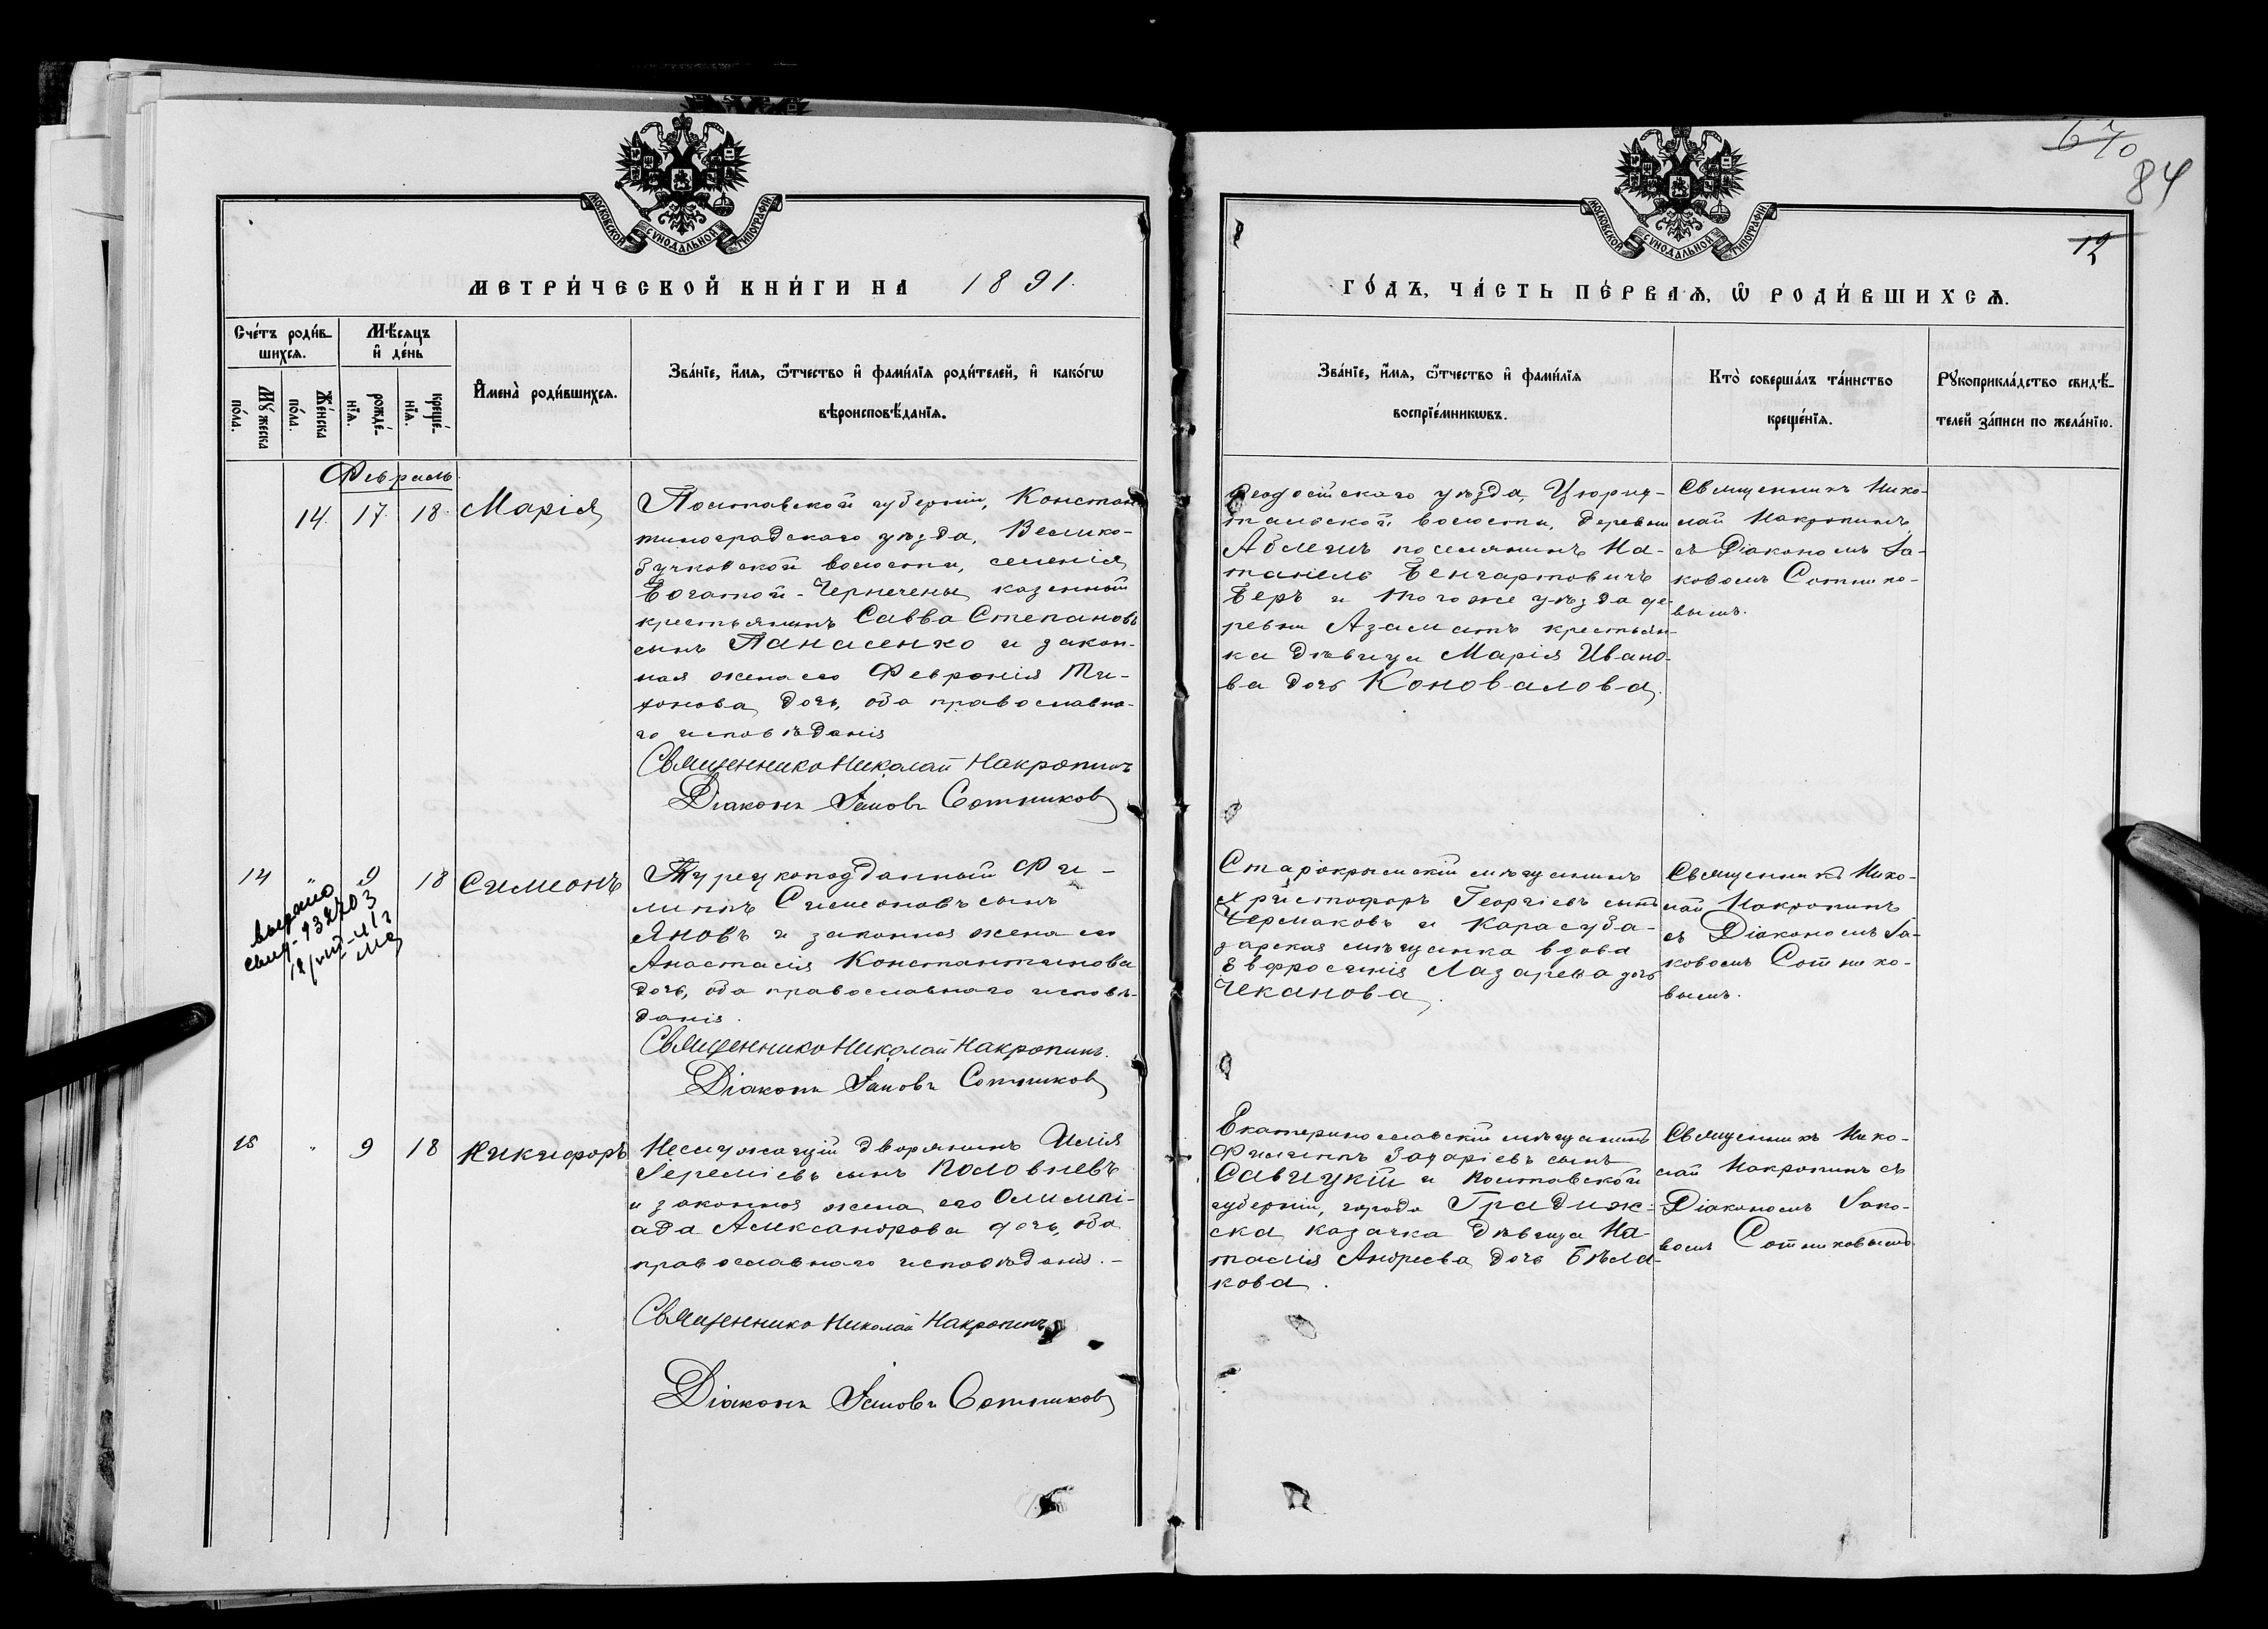 МОСКОВСКОЙ СУНОДАЛЬНОЙ ТИПОГРАФІИ
МЕТРИ́ЧЕСКОЙ КНИ́ГИ НА 1891.
Сче́тъ роди́в-
шихсѧ.
Мѣ́сѧцъ
и҆ де́нь
Му́жеска
по́ла.
Же́нска
по́ла.
рожде́-
нїѧ.
креще́-
нїѧ.
И҆мена̀ роди́вшихсѧ.
Зва́нїе, и҆́мѧ, ѻ҆́тчество и҆ фами́лїѧ роди́телей, и҆ како́гѡ
вѣроисповѣ́данїѧ.
Февраль.
14. 17. 18. Марія
Полтавской губерніи, Констан
тиноградскаго уѣзда, Велико-
бучковской волости, селенія
Богатой-Чернечены казенный
крестьянинъ Савва Степановъ
сынъ Панасенко и закон-
ная жена его Февронія Ти-
хонова дочь, оба православна-
го исповѣданія
Священникъ Николай Накропинъ
Діаконъ Іаковъ Сотников
14 " 9 18 Симеонъ
выдано
свид-
18/VIII-41 г
Турецкоподданный Фи-
липпъ Симеоновъ сынъ
Яновъ и законная жена его
Анастасія Константинова
дочь, оба православнаго исповѣ-
данія.
Священникъ Николай Накропинъ.
Діаконъ Іаковъ Сотников
15 " 9 18 Никифоръ
Неслужащій дворянинъ Илія
Іереміевъ сынъ Половневъ
и законная жена его Олимпі-
ада Александрова дочь, оба
православнаго исповѣданія.-
Священникъ Николай Накропинъ
Діаконъ Іаковъ Сотников
84
12
МОСКОВСКОЙ СУНОДАЛЬНОЙ ТИПОГРАФІИ
ГО́ДЪ, ЧА́СТЬ ПЕ́РВАѦ, Ѡ҆ РОДИ́ВШИХСѦ.
Зва́нїе, и҆́мѧ, ѻ҆́тчество и҆ фами́лїѧ
воспрїе́мникѡвъ.
Кто̀ соверша́лъ та́инство
креще́нїѧ.
Рꙋкоприкла́дство свидѣ́-
телей за́писи по жела́нїю.
Ѳеодосійскаго уѣзда, Цюрих-
тальской волости, деревни
Аблешъ поселянинъ На-
таніель Бенгартовичъ
Беръ и того же уѣзда де-
ревни Азаматъ крестьян-
ка дѣвица Марія Ивано-
ва дочь Коновалова.
Священникъ Нико-
лай Накропинъ
съ Діакономъ Іа-
ковомъ Сотнико-
вымъ.
Старокрымскій мѣщанинъ
Христофоръ Георгіевъ сынъ
Чермаковъ и Карасуба-
зарская мѣщанка вдова
Евфросинія Лазарева дочь
Чеканова.
Священникъ Нико-
лай Накропинъ
съ Діакономъ Іа-
ковомъ Сотнико-
вымъ.
Екатеринославскій мѣщанинъ
Филиппъ Захаріевъ сынъ
Савицкій и Полтавской
губерніи, города Градиж-
ска козачка дѣвица На-
талія Андреева дочь Бѣла-
кова.
Священникъ Нико-
лай Накропинъ съ
Діакономъ Іако-
вомъ Сотниковымъ.